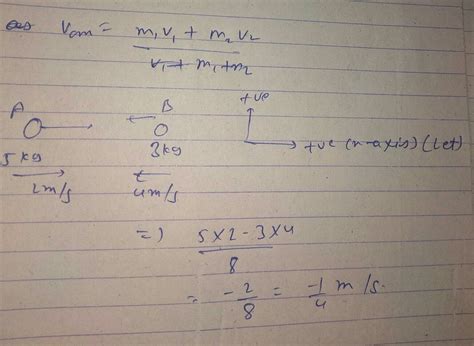 Vcm = m₁v₁ + m₂v₂
m₁+m₂
A B +ve
5kg 3kg +ve (x-axis) (Let)
2m/s 4m/s
=) 5×2-3×4
8
= -2/8 = -1/4 m/s.